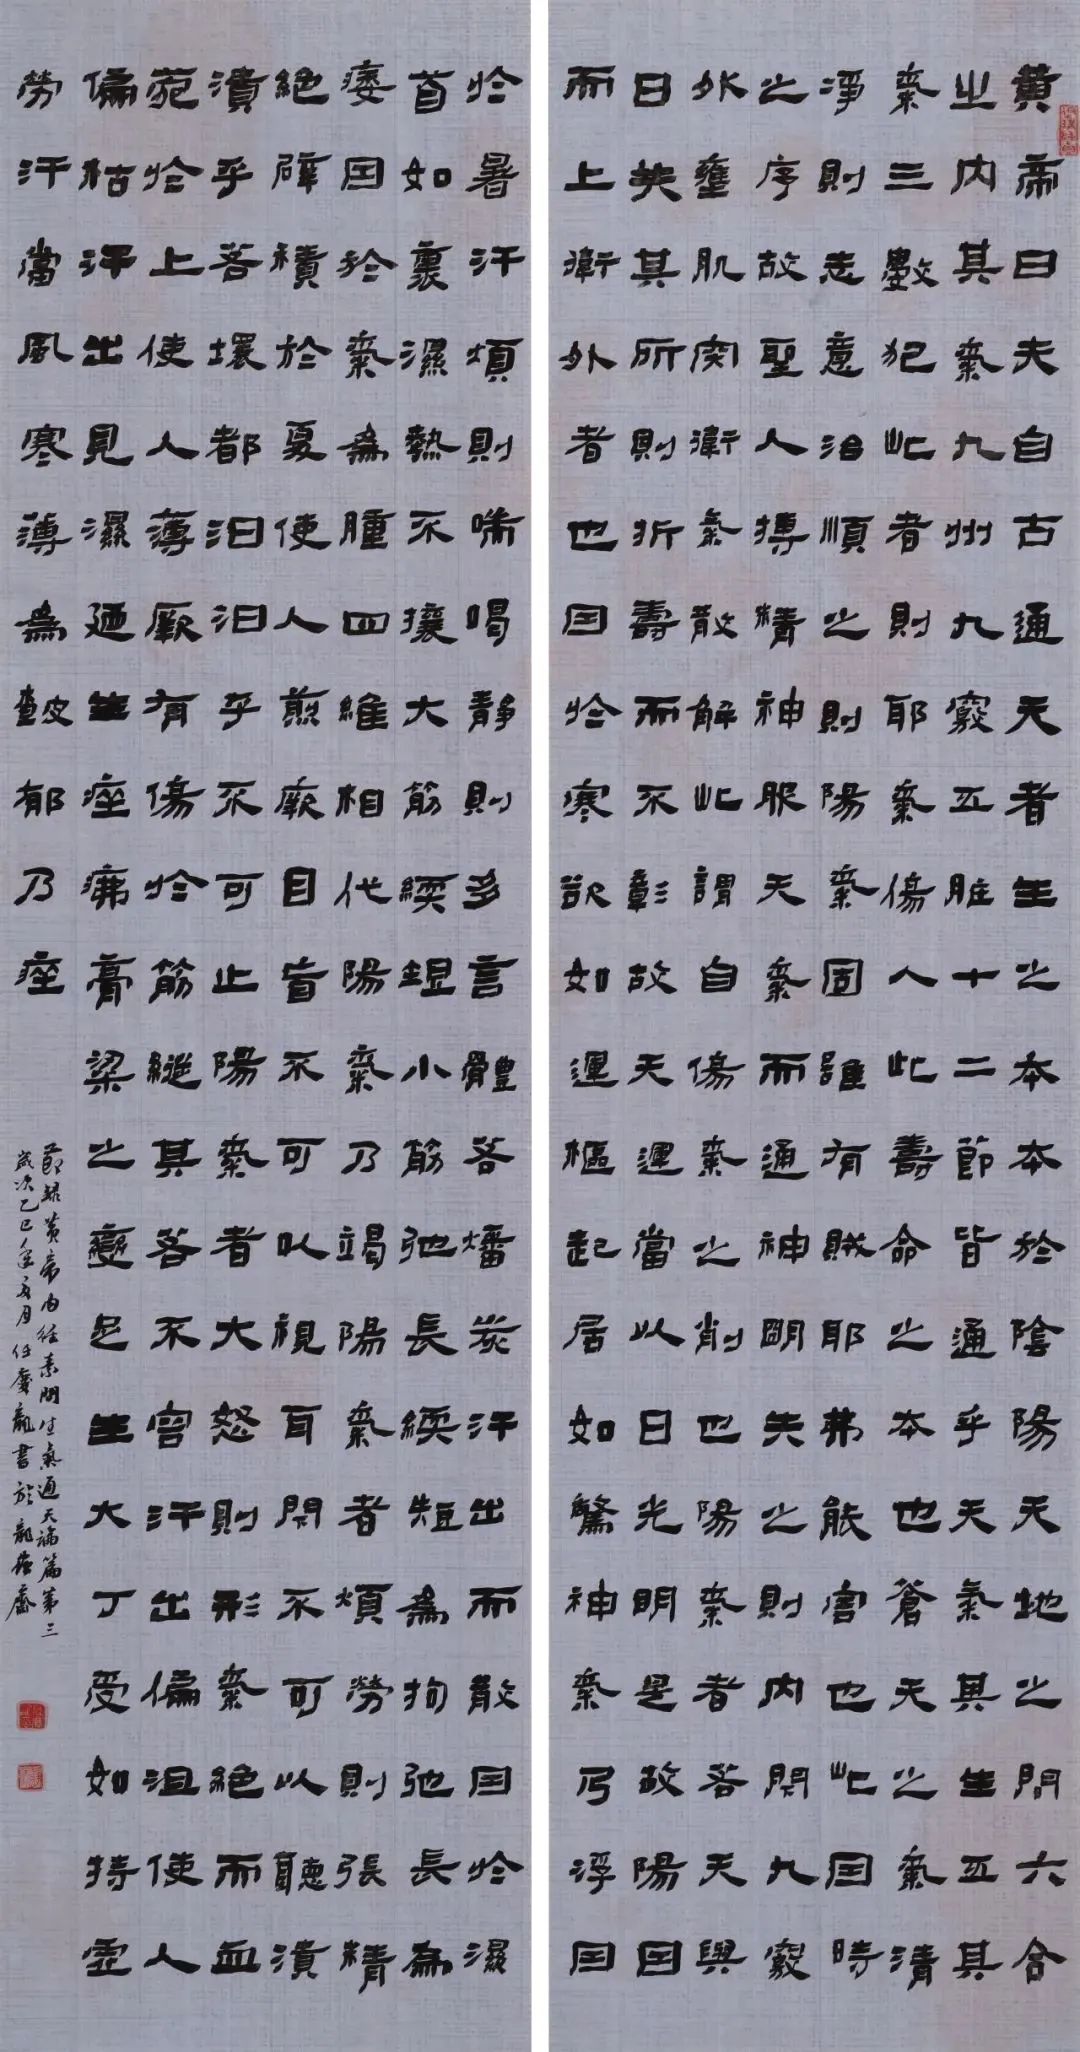 黃帝曰夫自古通天者生之本本於陰陽天地之閒六合
之內其氣九州九竅五脏十二節皆通乎天氣其生五其
氣三數犯此者則耶氣傷人此壽命之本也蒼天之氣清
淨則志意治順之則陽氣固誰有賊耶弗能害也此因時
之序故聖人摶精神服天氣而通神明失之則内閉九竅
外壅肌肉衛氣散解此謂自傷氣之削也陽氣者若天與
日失其所則折壽而不彰故天運當以日光明是故陽因
而上衛外者也因於寒欲如運樞起居如驚神氣乃浮因
於暑汗煩則喘喝静則多言體若燔炭汗出而散因於濕
首如裹濕熱不攘大筋緛短小筋弛長緛短為拘弛長為
痿因於氣為腫四維相代陽氣乃竭陽氣者煩勞則張精
絶辟積於夏使人煎厥目盲不可以視耳閉不可以聽潰
潰乎若壞都汩汩乎不可止陽氣者大怒則形氣絶而血
菀於上使人薄厥有傷於筋縱其若不容汗出偏沮使人
偏枯汗出見濕廼生痤疿膏粱之變足生大丁受如持虛
勞汗當風寒薄為皶郁乃痤
節録黄帝内经素問生氣通天論篇第三
歲次乙巳年五月任慶龍書於龍齋